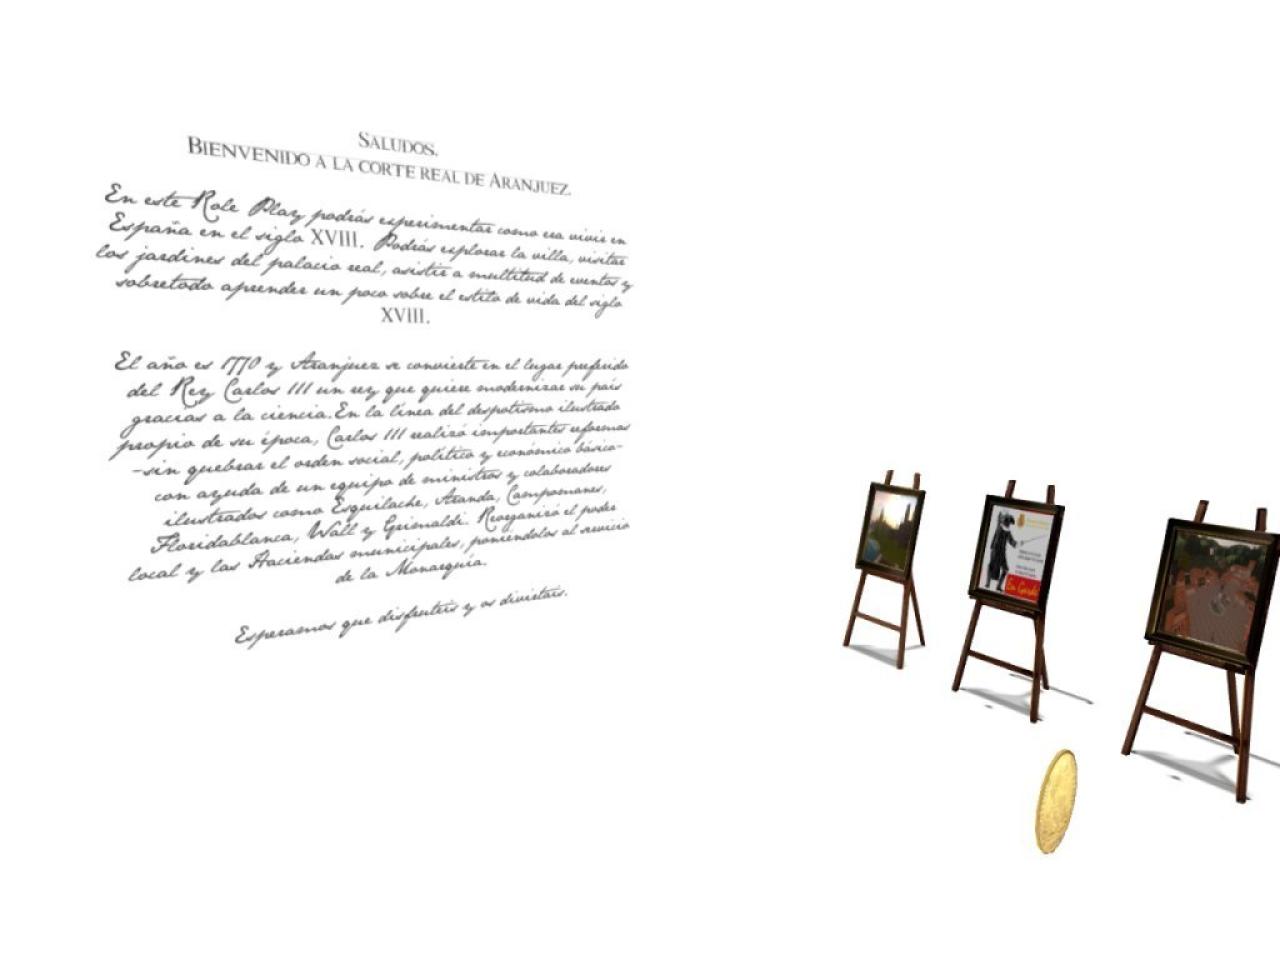 SALUDOS.
BIENVENIDO A LA CORTE REAL DE ARANJUEZ.
En este Role Play podrás experimentar como era vivir en
España en el siglo XVIII. Podrás explorar la villa, visitar
los jardines del palacio real, asistir a multitud de eventos y
sobretodo aprender un poco sobre el estilo de vida del siglo
XVIII.
El año es 1770 y Aranjuez se convierte en el lugar preferido
del Rey Carlos III un rey que quiere modernizar su país
gracias a la ciencia. En la línea del despotismo ilustrado
propio de su época, Carlos III realizó importantes reformas
-sin quebrar el orden social, político y económico básico-
con ayuda de un equipo de ministros y colaboradores
ilustrados como Esquilache, Aranda, Campomanes,
Floridablanca, Wall y Grimaldi. Reorganizó el poder
local y las Haciendas municipales, poniéndolos al servicio
de la Monarquía.
Esperamos que disfrutéis y os divirtáis.
En Garde